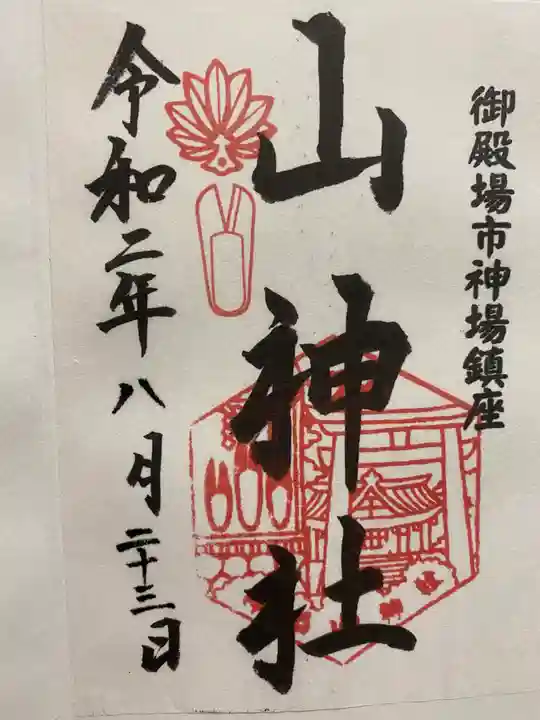 御殿場市神場鎮座
山神社
令和二年八月二十三日